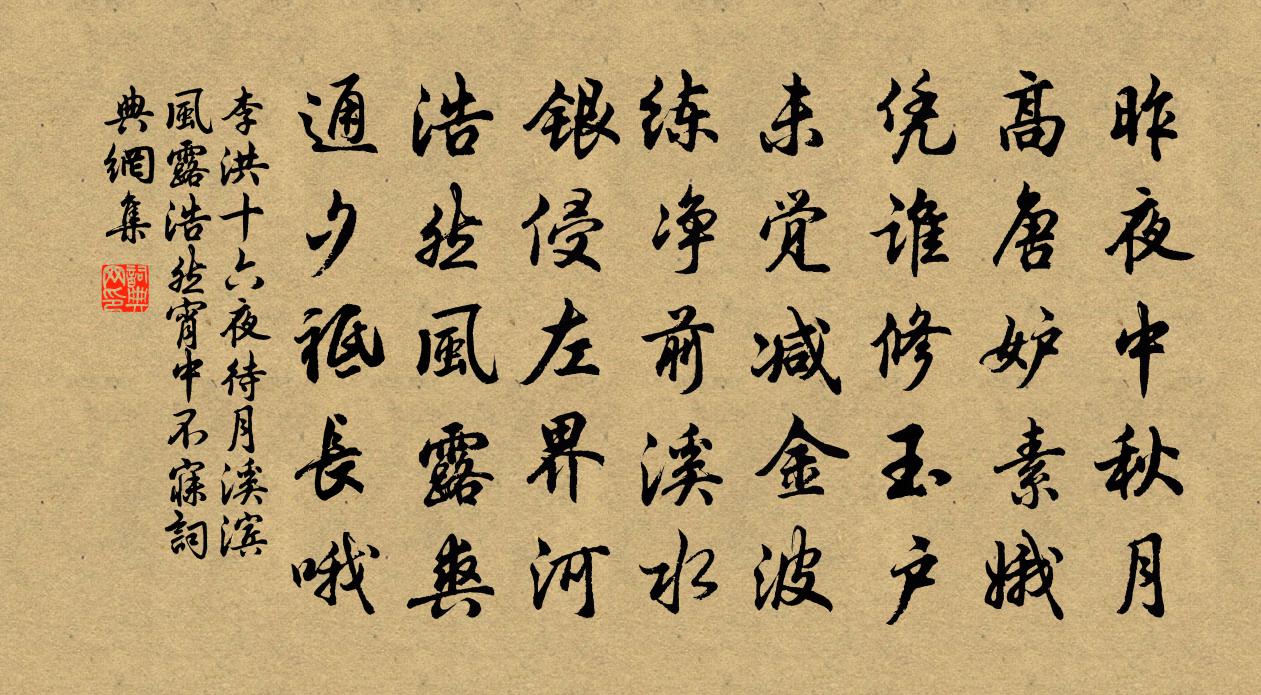 昨夜中秋月
高唐妒素娥
凭谁修玉户
未觉减金波
练净前溪水
银侵左界河
浩然風露爽
通夕祗長哦
李洪十六夜待月溪滨
風露浩然宵中不寐詞
典網集
詞典网印